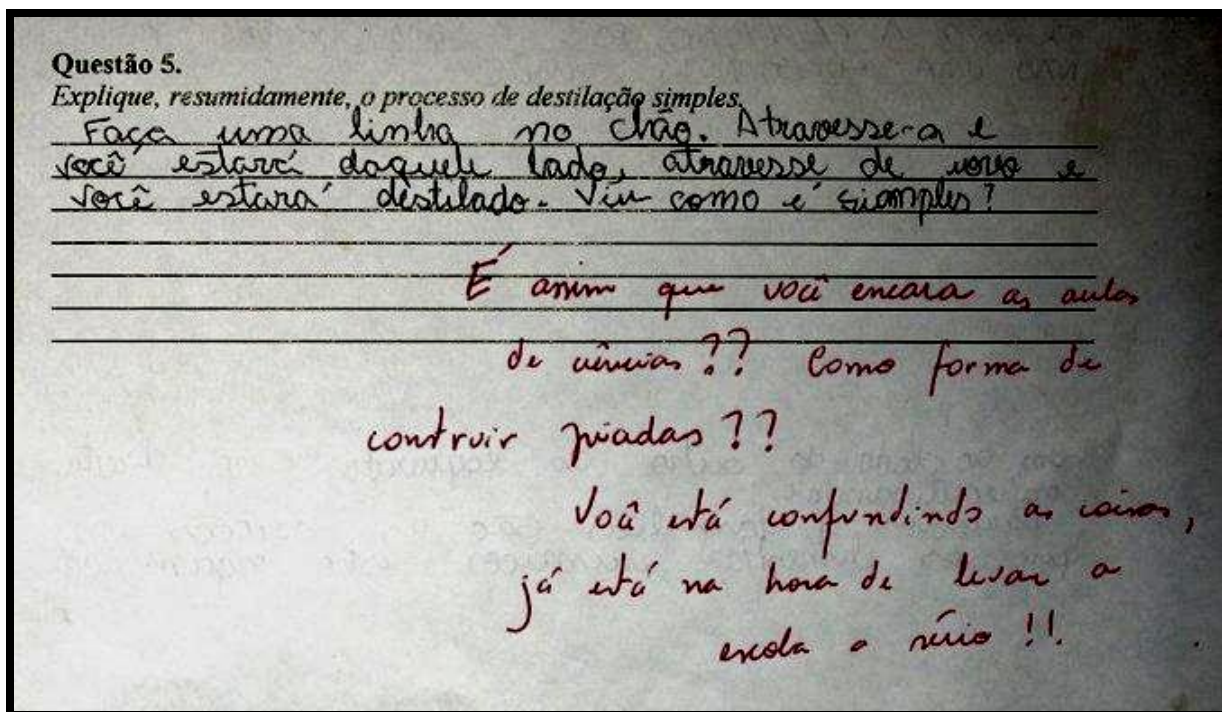 Questão 5.
Explique, resumidamente, o processo de destilação simples.
Faça uma linha no chão. Atravesse-a e
você estará daquele lado, atravesse de novo e
você estará destilado. Viu como é siomples?
É assim que você encara as aulas
de ciências?? Como forma de
contruir piadas??
Você está confundindo as coisas,
já está na hora de levar a
escola a sério!!